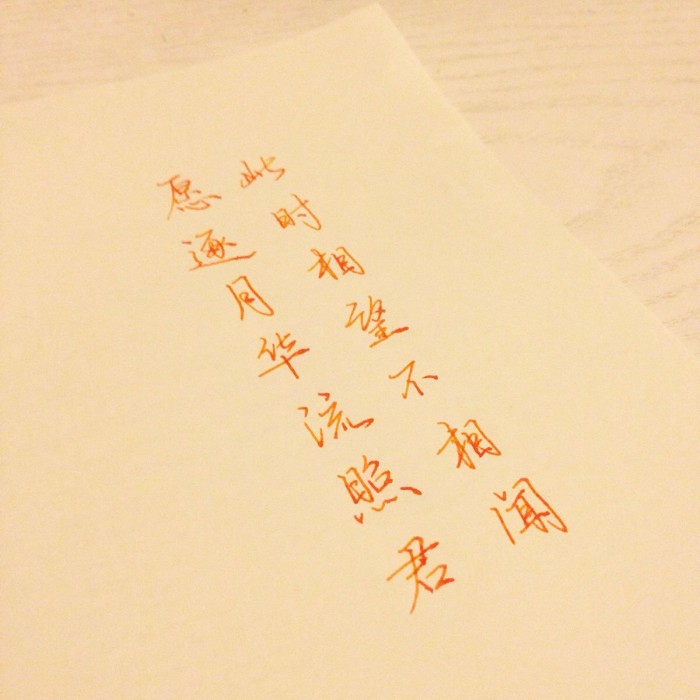 此时相望不相闻
愿逐月华流照君